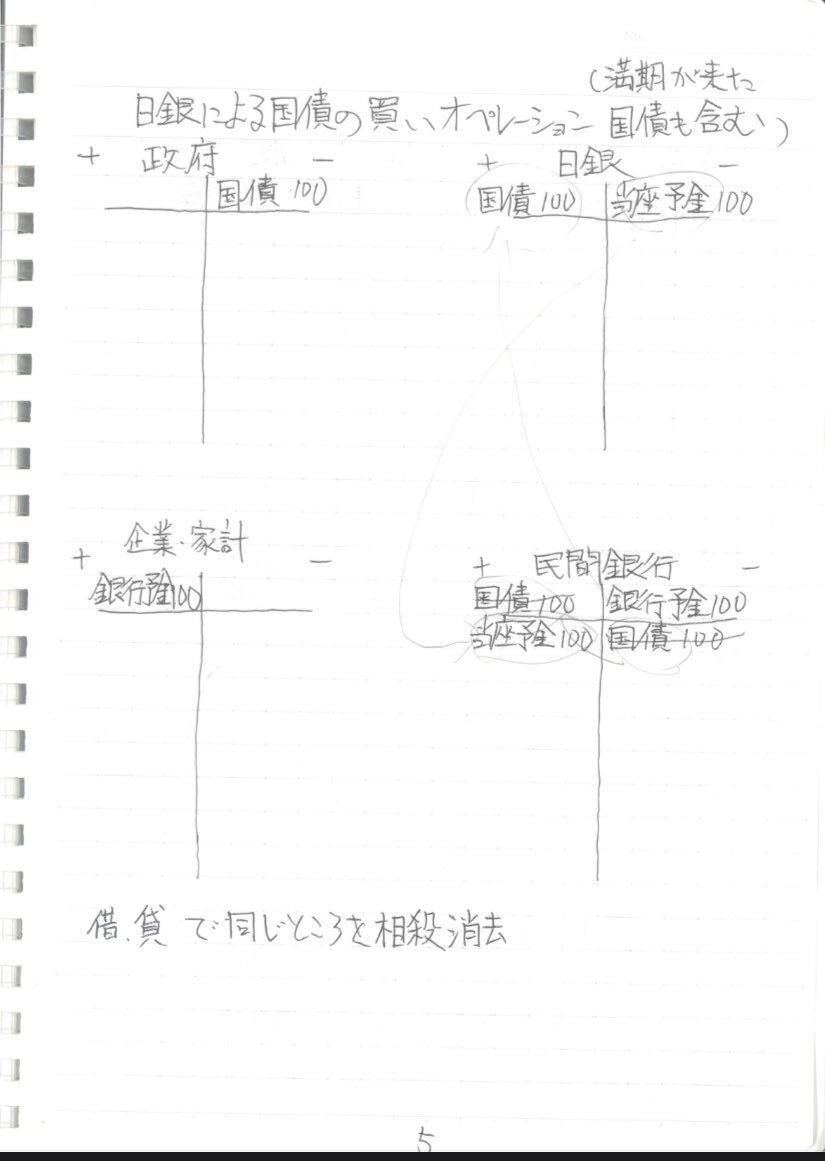 (満期が来た
日銀による国債の買いオペレーション 国債も含む)
+ 政府 -
国債 100
+ 日銀 -
国債 100 当座予金 100
+ 企業・家計 -
銀行予金100
+ 民間銀行 -
国債 100 銀行予金 100
当座予金 100 国債 100
借、貸 で同じところを相殺消去
5